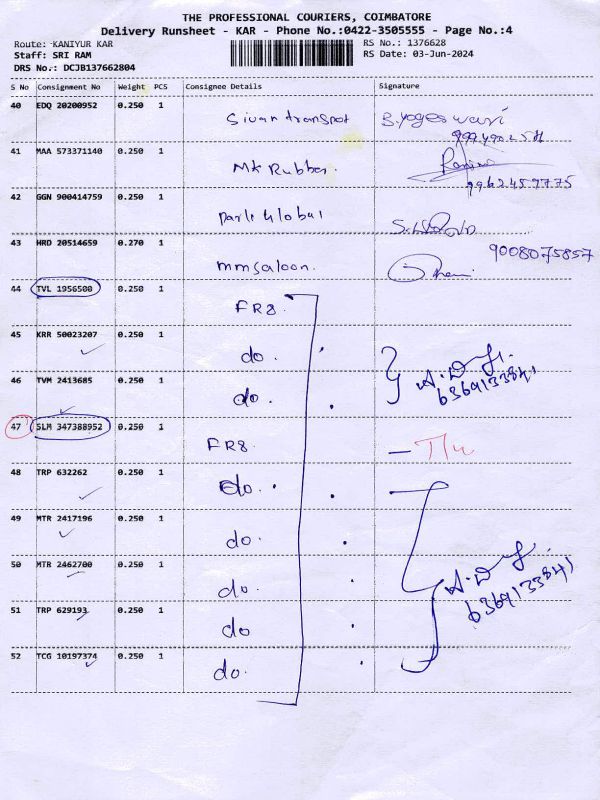 THE PROFESSIONAL COURIERS, COIMBATORE
Delivery Runsheet - KAR - Phone No.:0422-3505555 - Page No.:4
Route: KANIYUR KAR
RS No.: 1376628
Staff: SRI RAM
RS Date: 03-Jun-2024
DRS No.: DCJB137662804
S No Consignment No Weight PCS Consignee Details Signature
40 EDQ 20200952 0.250 1 Sivan transpot
41 MAA 573371140 0.250 1 MK Rubber.
9962459775
42 GGN 900414759 0.250 1 Parle Global
43 HRD 20514659 0.270 1 mmsaloon. 9008075857
44 TVL 1956500 0.250 1 FR8.
45 KRR 50023207 0.250 1 do.
46 TVM 2413685 0.250 1 do. 6369133841
47 SLM 347388952 0.250 1 FR8.
48 TRP 632262 0.250 1 do.
49 MTR 2417196 0.250 1 do.
50 MTR 2462700 0.250 1 do. 6369133841
51 TRP 629193 0.250 1 do
52 TCG 10197374 0.250 1 do.